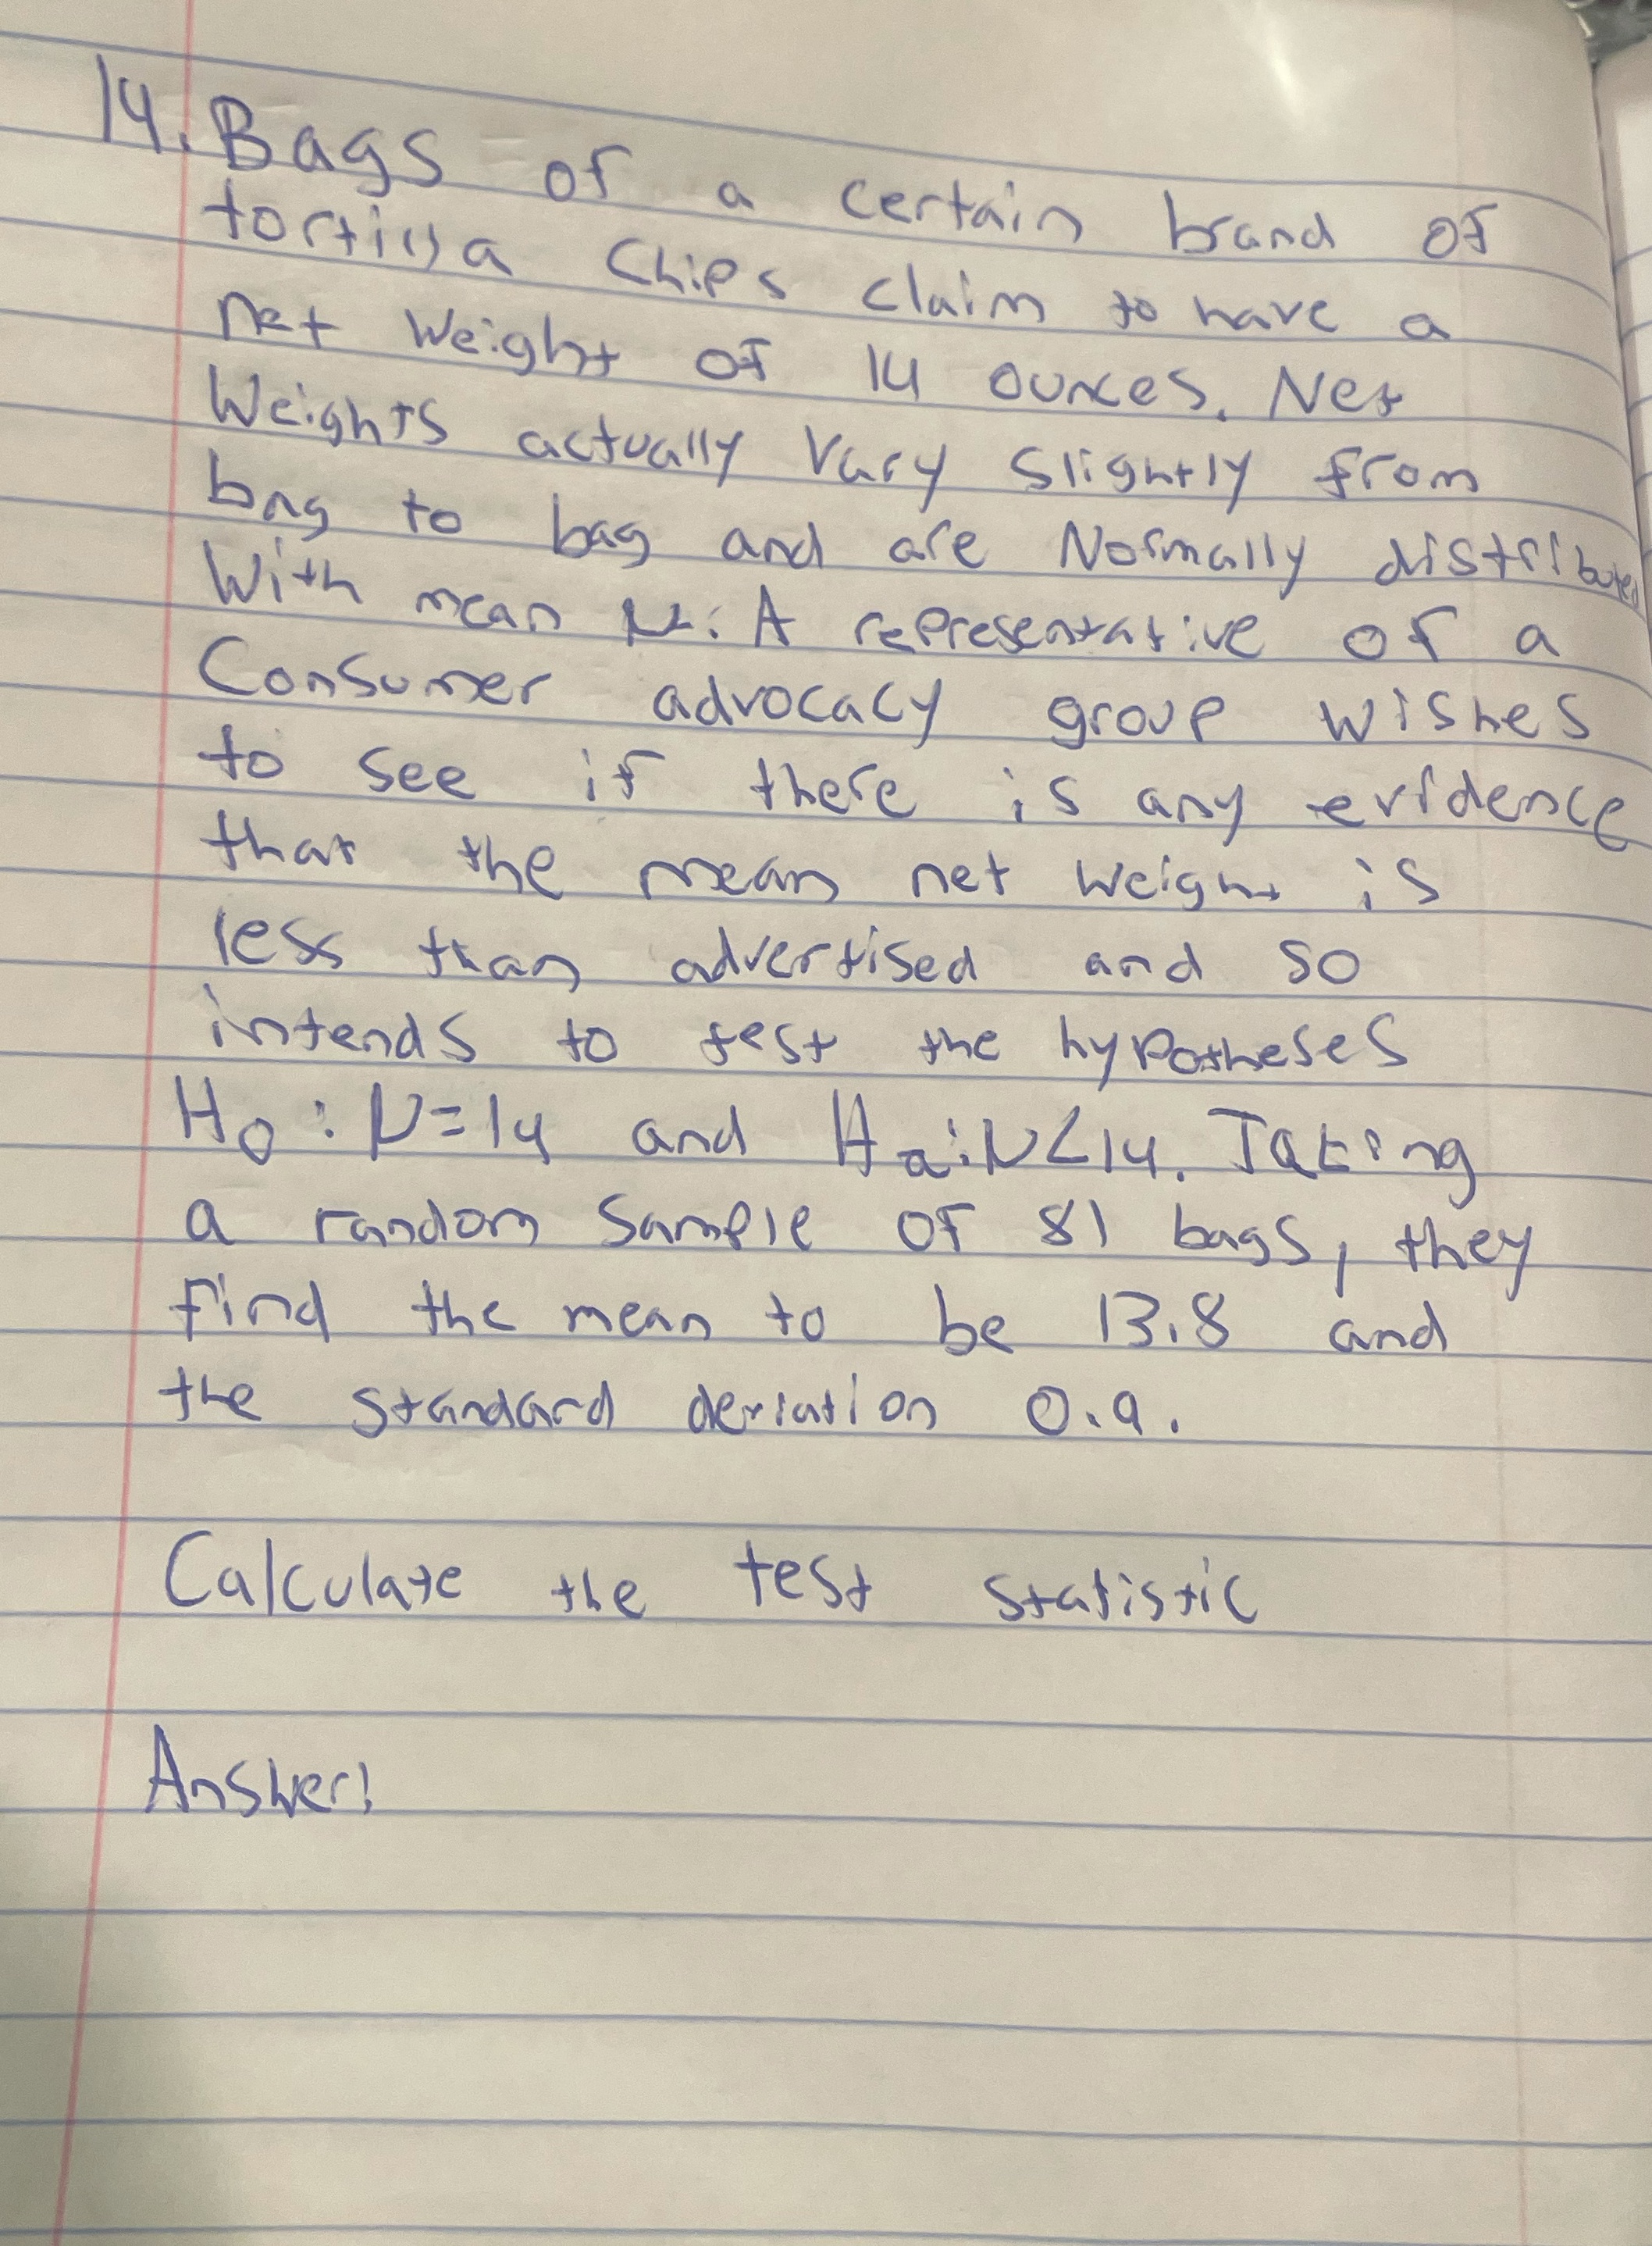 14. Bags of a certain brand of
tortilla chips claim to have a
net weight of 14 ounces. Net
weights actually vary slightly from
bag to bag and are Normally distributed
with mean μ. A representative of a
Consumer advocacy group wishes
to see if there is any evidence
that the mean net weight is
less than advertised and so
intends to test the hypotheses
H₀: μ=14 and Hₐ: μ<14. Taking
a random sample of 81 bags, they
find the mean to be 13.8 and
the standard deviation 0.9.
Calculate the test statistic
Answer: